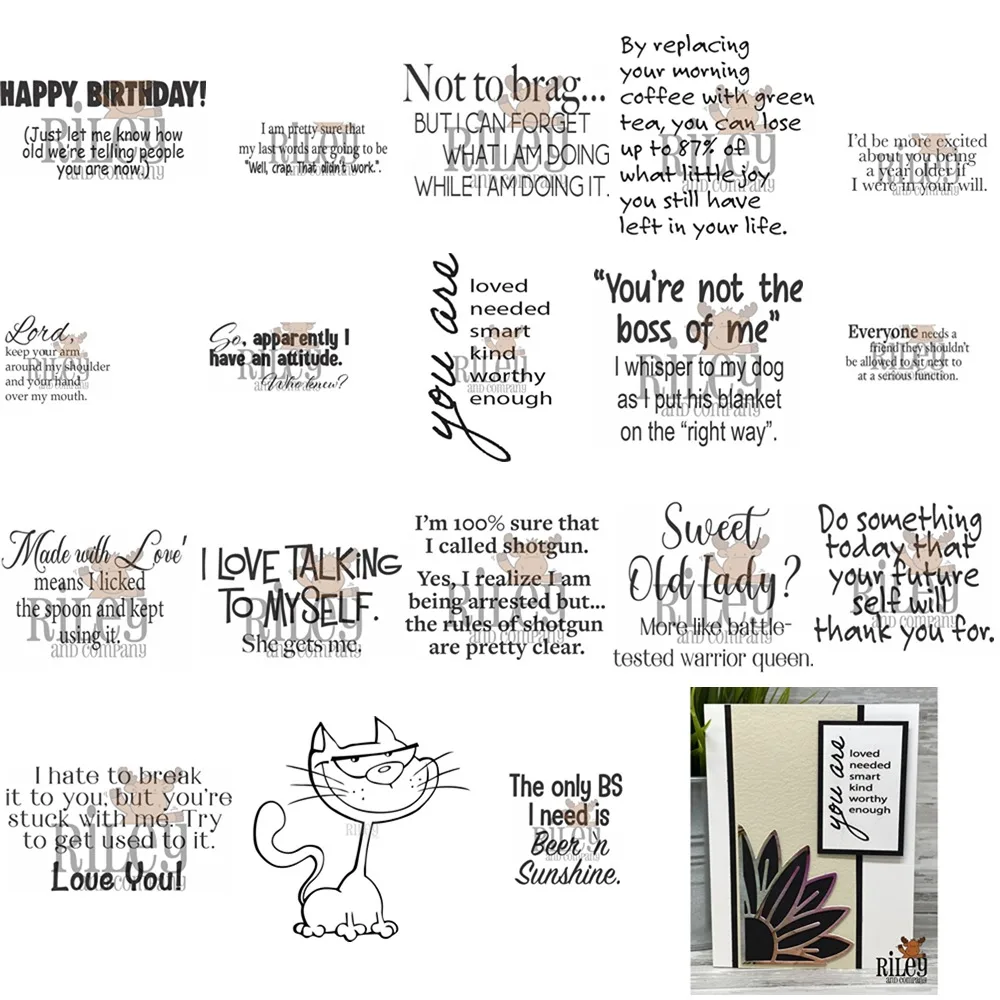 HAPPY BIRTHDAY!
(Just let me know how
old we're telling people
you are now.)
I am pretty sure that
my last words are going to be
"Well, crap. That didn't work.".
Not to brag...
BUT I CAN FORGET
WHAT I AM DOING
WHILE I AM DOING IT.
By replacing
your morning
coffee with green
tea, you can lose
up to 87% of
what little joy
you still have
left in your life.
I'd be more excited
about you being
a year older if
I were in your will.
Lord,
keep your arm
around my shoulder
and your hand
over my mouth.
So, apparently I
have an attitude.
Who knew?
you are
loved
needed
smart
kind
worthy
enough
"You're not the
boss of me"
I whisper to my dog
as I put his blanket
on the "right way".
Everyone needs a
friend they shouldn't
be allowed to sit next to
at a serious function.
'Made with Love'
means I licked
the spoon and kept
using it.
I LOVE TALKING
TO MYSELF.
She gets me.
I'm 100% sure that
I called shotgun.
Yes, I realize I am
being arrested but...
the rules of shotgun
are pretty clear.
Sweet
Old Lady?
More like battle-
tested warrior queen.
Do something
today that
your future
self will
thank you for.
I hate to break
it to you, but you're
stuck with me. Try
to get used to it.
Love You!
The only BS
I need is
Beer 'n
Sunshine.
you are
loved
needed
smart
kind
worthy
enough
RILEY
AND COMPANY